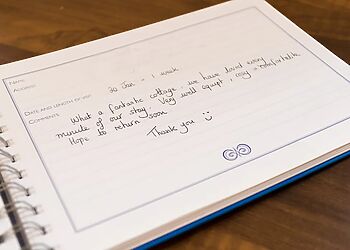 NAME
ADDRESS
30 Jan - 1 week
DATE AND LENGTH OF VISIT
COMMENTS
What a fantastic cottage we have loved every
minute of our stay. Very well equipt, cosy + comfortable
Hope to return soon
Thank you